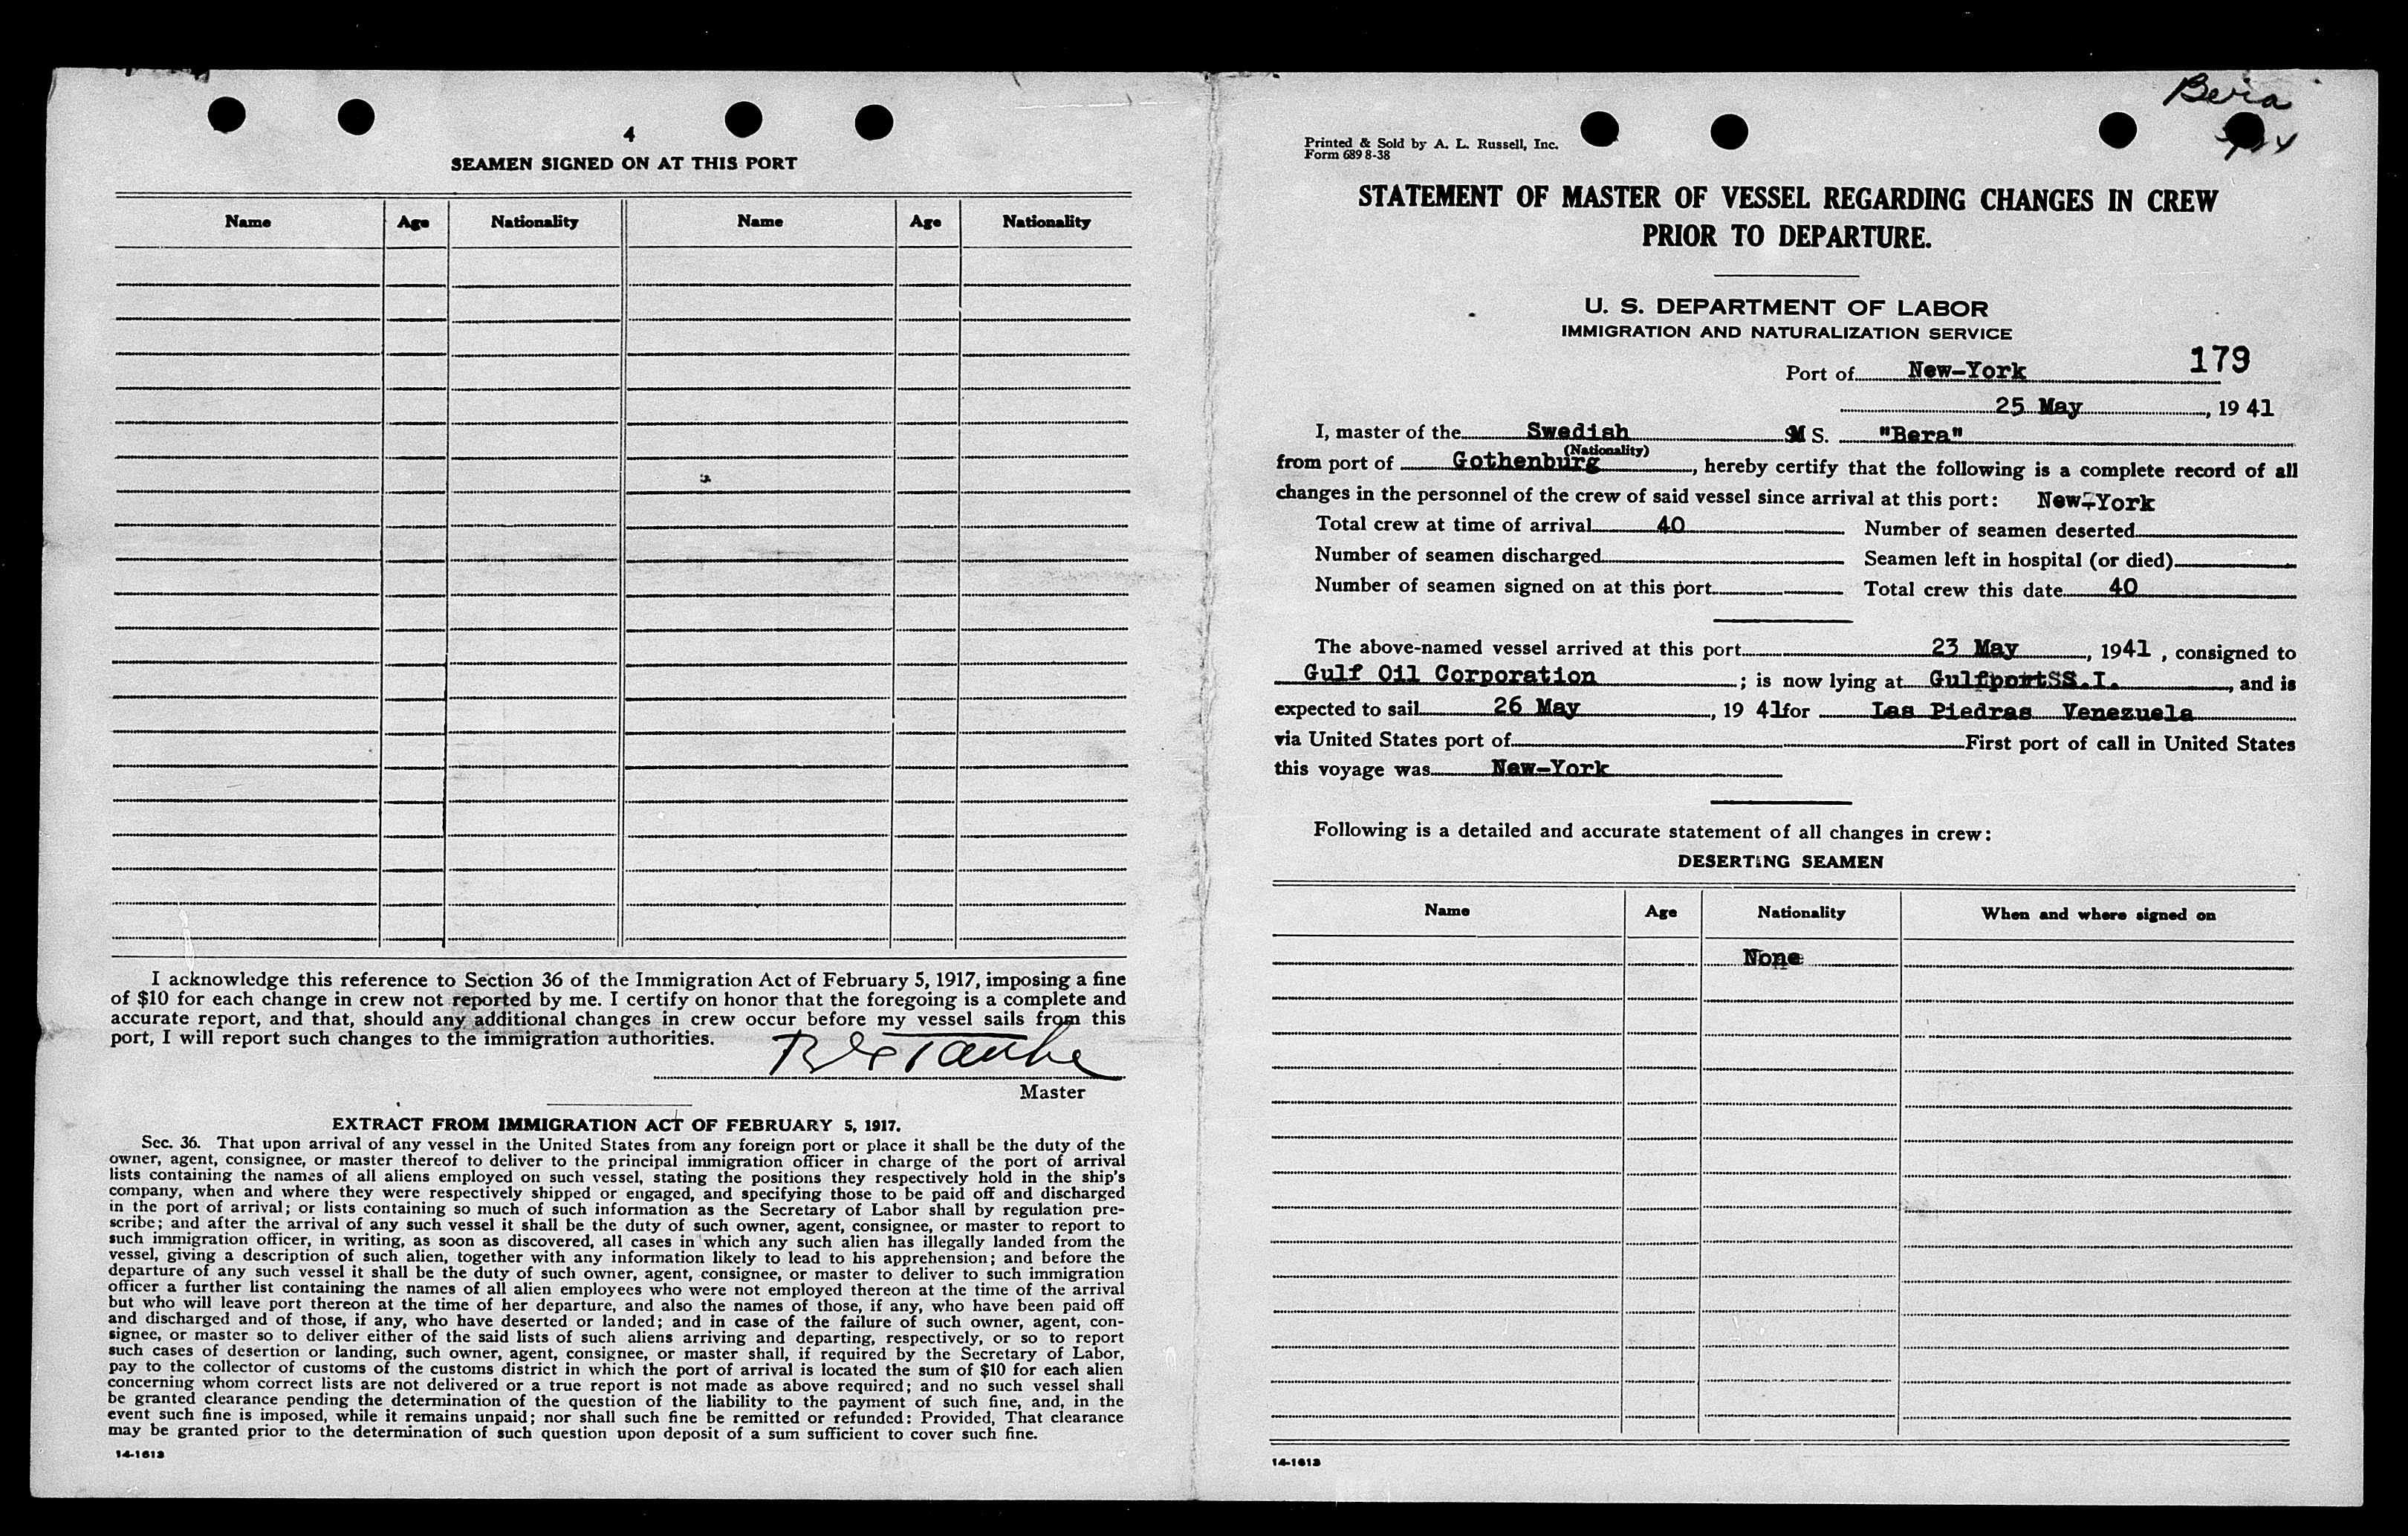 4
SEAMEN SIGNED ON AT THIS PORT
Name Age Nationality Name Age Nationality
I acknowledge this reference to Section 36 of the Immigration Act of February 5, 1917, imposing a fine
of $10 for each change in crew not reported by me. I certify on honor that the foregoing is a complete and
accurate report, and that, should any additional changes in crew occur before my vessel sails from this
port, I will report such changes to the immigration authorities.
Master
EXTRACT FROM IMMIGRATION ACT OF FEBRUARY 5, 1917.
Sec. 36. That upon arrival of any vessel in the United States from any foreign port or place it shall be the duty of the
owner, agent, consignee, or master thereof to deliver to the principal immigration officer in charge of the port of arrival
lists containing the names of all aliens employed on such vessel, stating the positions they respectively hold in the ship's
company, when and where they were respectively shipped or engaged, and specifying those to be paid off and discharged
in the port of arrival; or lists containing so much of such information as the Secretary of Labor shall by regulation pre-
scribe; and after the arrival of any such vessel it shall be the duty of such owner, agent, consignee, or master to report to
such immigration officer, in writing, as soon as discovered, all cases in which any such alien has illegally landed from the
vessel, giving a description of such alien, together with any information likely to lead to his apprehension; and before the
departure of any such vessel it shall be the duty of such owner, agent, consignee, or master to deliver to such immigration
officer a further list containing the names of all alien employees who were not employed thereon at the time of the arrival
but who will leave port thereon at the time of her departure, and also the names of those, if any, who have been paid off
and discharged and of those, if any, who have deserted or landed; and in case of the failure of such owner, agent, con-
signee, or master so to deliver either of the said lists of such aliens arriving and departing, respectively, or so to report
such cases of desertion or landing, such owner, agent, consignee, or master shall, if required by the Secretary of Labor,
pay to the collector of customs of the customs district in which the port of arrival is located the sum of $10 for each alien
concerning whom correct lists are not delivered or a true report is not made as above required; and no such vessel shall
be granted clearance pending the determination of the question of the liability to the payment of such fine, and, in the
event such fine is imposed, while it remains unpaid; nor shall such fine be remitted or refunded: Provided, That clearance
may be granted prior to the determination of such question upon deposit of a sum sufficient to cover such fine.
14-1613
Bera
Printed & Sold by A. L. Russell, Inc.
Form 689 8-38
STATEMENT OF MASTER OF VESSEL REGARDING CHANGES IN CREW
PRIOR TO DEPARTURE.
U. S. DEPARTMENT OF LABOR
IMMIGRATION AND NATURALIZATION SERVICE
179
Port of New-York
25 May, 19 41
I, master of the Swedish M S. "Bera"
(Nationality)
from port of Gothenburg, hereby certify that the following is a complete record of all
changes in the personnel of the crew of said vessel since arrival at this port: New-York
Total crew at time of arrival 40 Number of seamen deserted
Number of seamen discharged Seamen left in hospital (or died)
Number of seamen signed on at this port Total crew this date 40
The above-named vessel arrived at this port 23 May, 1941, consigned to
Gulf Oil Corporation; is now lying at Gulfport S.I., and is
expected to sail 26 May, 19 41 for Las Piedras Venezuela
via United States port of First port of call in United States
this voyage was New-York
Following is a detailed and accurate statement of all changes in crew:
DESERTING SEAMEN
Name Age Nationality When and where signed on
None
14-1613